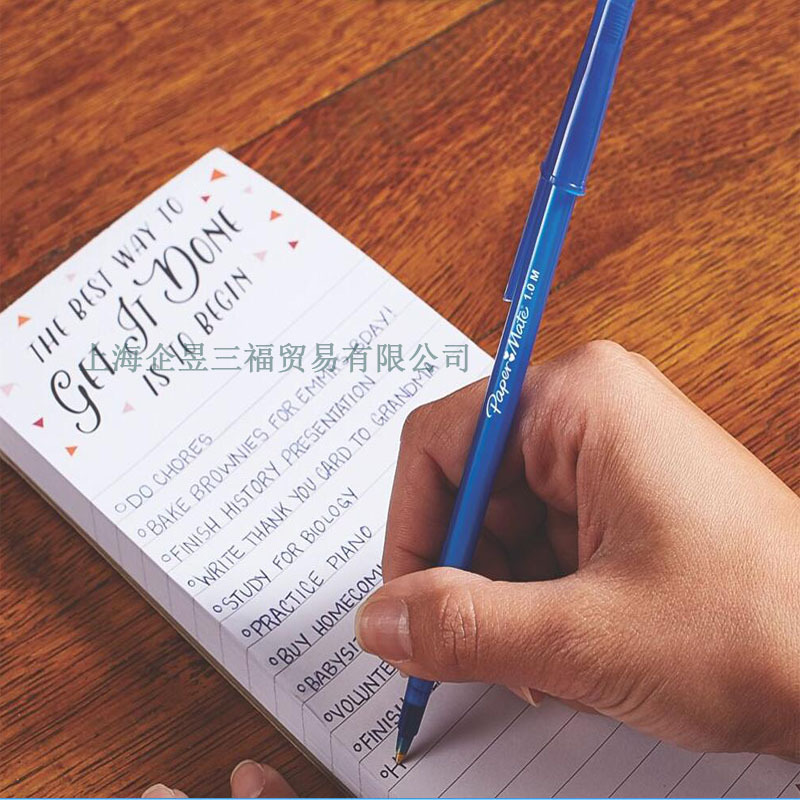 THE BEST WAY TO
GET IT DONE
IS TO BEGIN
上海企昱三福贸易有限公司
DO CHORES
BAKE BROWNIES FOR EMMA'S BDAY!
FINISH HISTORY PRESENTATION
WRITE THANK YOU CARD TO GRANDMA
STUDY FOR BIOLOGY
PRACTICE PIANO
BUY
FINISH
H
Paper Mate 1.0 M